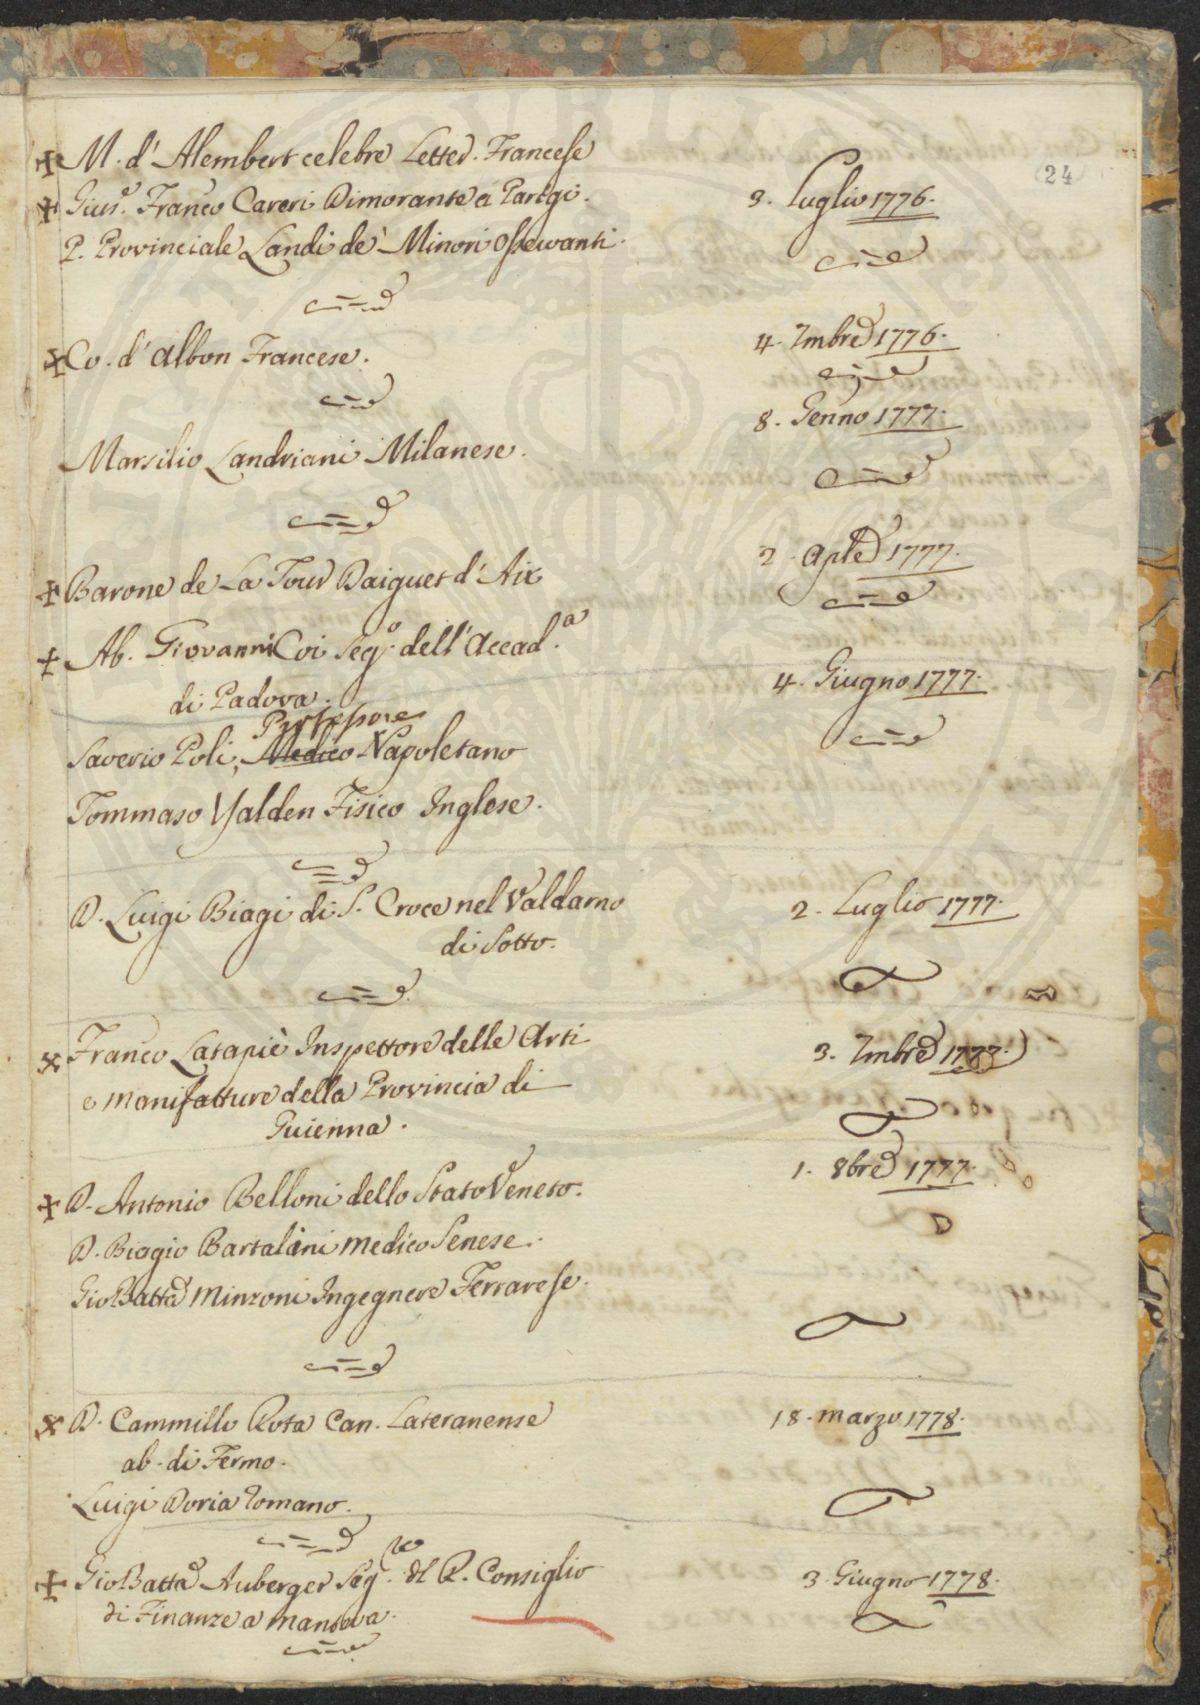 24
✠ M. d'Alembert celebre Letter. Francese
✠ Gius.e Fran.co Careri Dimorante a Parigi. 3. Luglio 1776.
P. Provinciale Landi de' Minori Osservanti.
✠ Co. d'Albon Francese. 4. 7mbre 1776.
8. Genn.o 1777.
Marsilio Landriani Milanese.
2. Aple 1777.
✠ Barone de La Tour Daigues d'Aix
✠ Ab. Giovanni Coi Seg.o dell'Accad.a
di Padova. 4. Giugno 1777.
Professore
Saverio Poli, Medico Napoletano
Tommaso Yalden Fisico Inglese.
D. Luigi Biagi di S. Croce nel Valdarno 2. Luglio 1777.
di Sotto.
✠ Fran.co Latapiè Inspettore delle Arti 3. 7mbre 1777.
e manifatture della Provincia di
Guienna.
1. 8bre 1777.
✠ D. Antonio Belloni dello Stato Veneto.
D. Biagio Bartalini medico Senese.
Gio Batta Minzoni Ingegnere Ferrarese.
✠ D. Cammillo Rota Can. Lateranense 18. marzo 1778.
ab. di Fermo.
Luigi Doria romano.
✠ Gio Batta Auberger Seg.rio dl R. Consiglio 3. Giugno 1778.
di Finanze a Mantova.